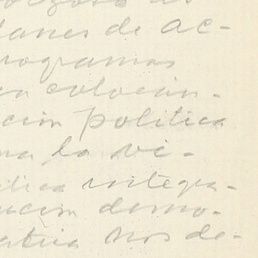 danes de ac-
rogramas
en colocan-
ción politica
na la vi-
itica integra-
ución demo-
ativa nos de-